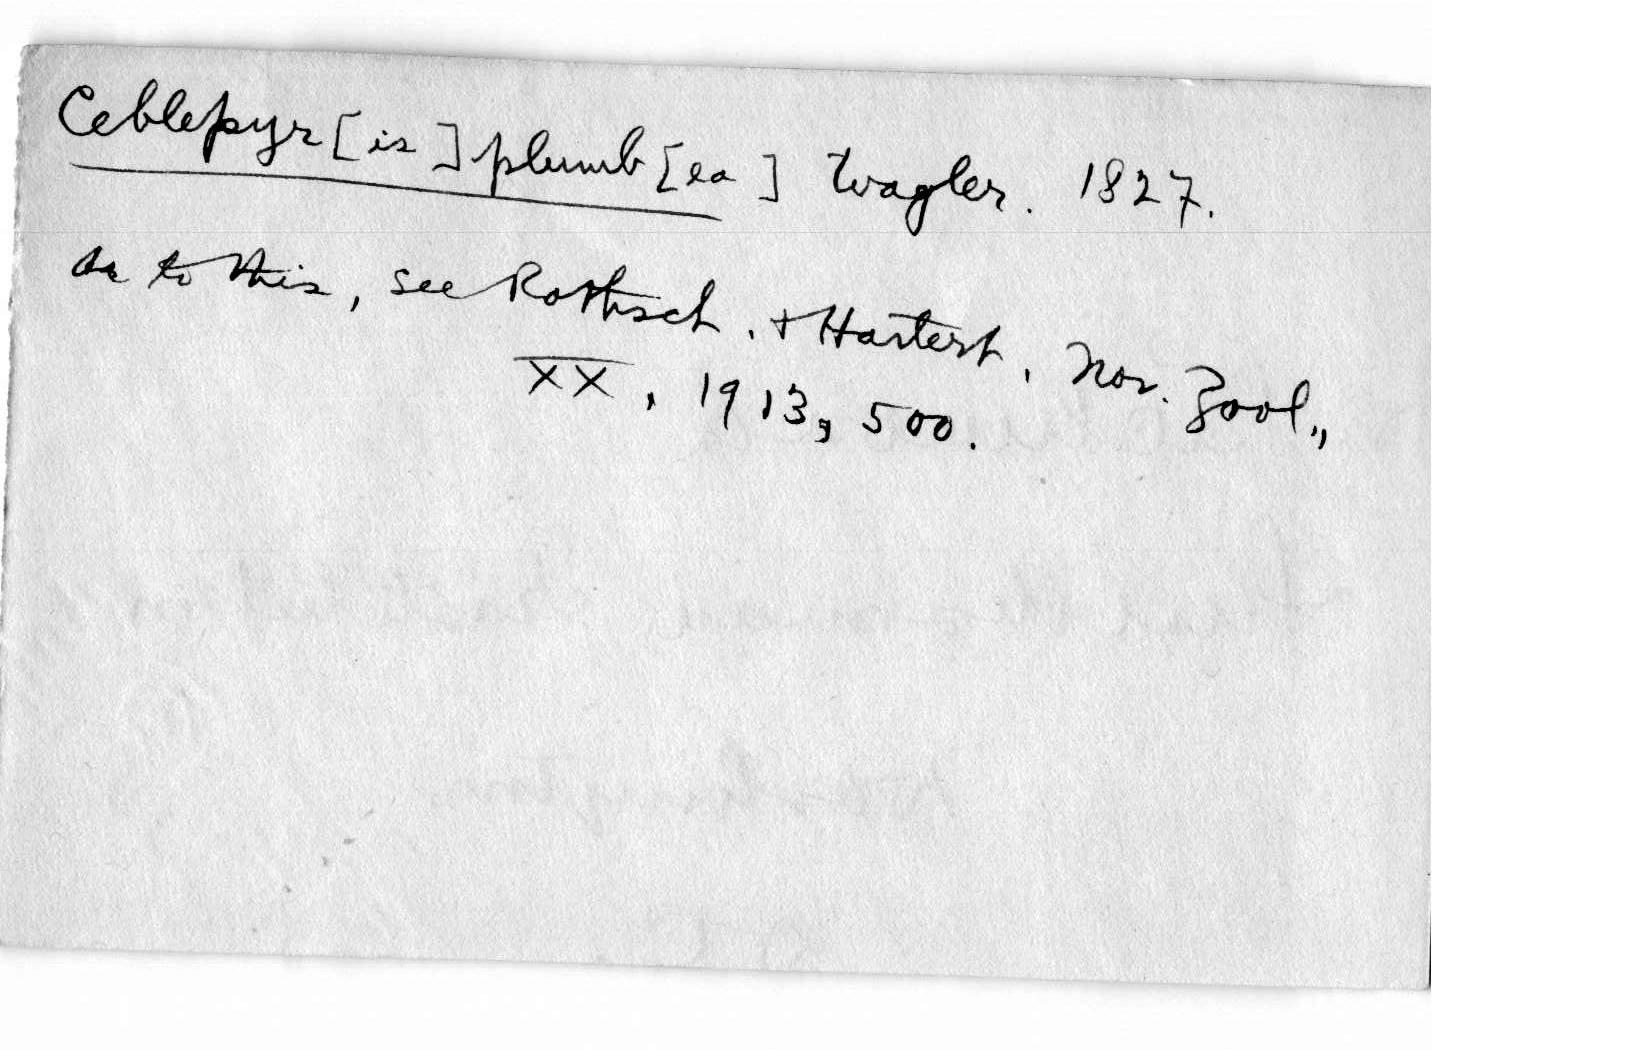 Ceblepyr[is] plumb[ea] Wagler. 1827.
As to this, see Rothsch. + Hartert, Nov. Zool.,
XX, 1913, 500.